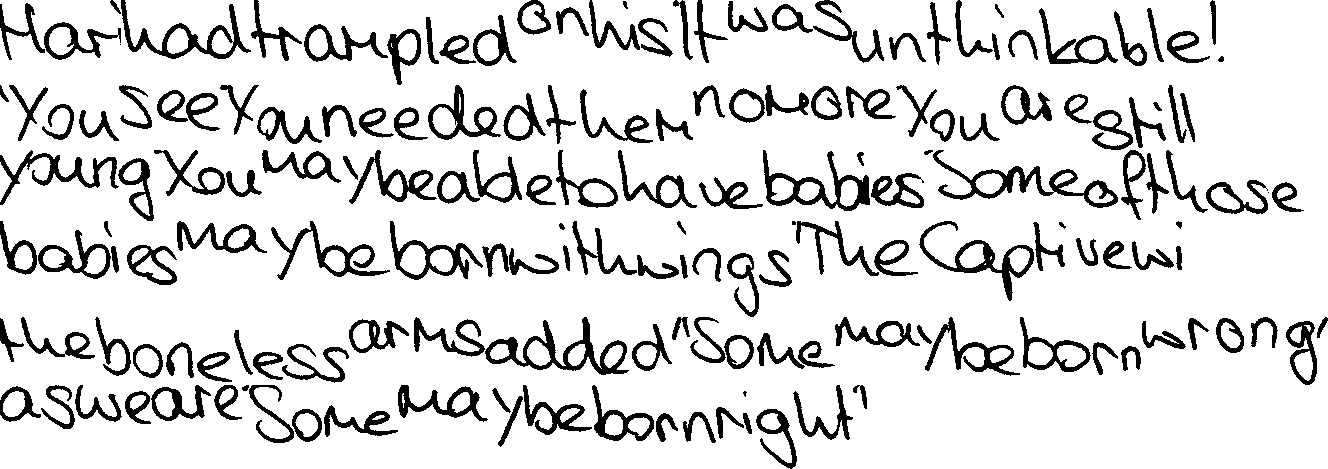 Mar had trampled on his It was unthinkable!
"You see You needed them no more You are still
young You may be able to have babies Some of those
babies may be born with wings" The Captive wi
the boneless arms added "Some may be born wrong,
as we are Some may be born right"